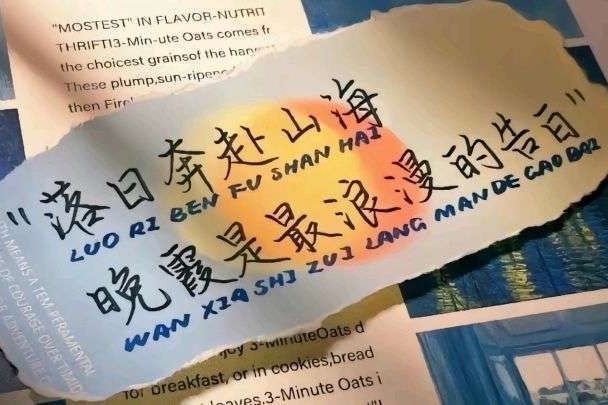 "MOSTEST" IN FLAVOR-NUTRIT
THRIFT!3-Min-ute Oats comes fr
the choicest grainsof the harves
These plump,sun-ripened
then Fire
"落日奔赴山海
LUO RI BEN FU SHAN HAI
晚霞是最浪漫的告白"
WAN XIA SHI ZUI LANG MAN DE GAO BAI
TH MEANS A TEM PERAMENTAL
OF COURAGE OVER TIMID
joy 3-MinuteOats d
for breakfast, or in cookies,bread
leaves.3-Minute Oats i